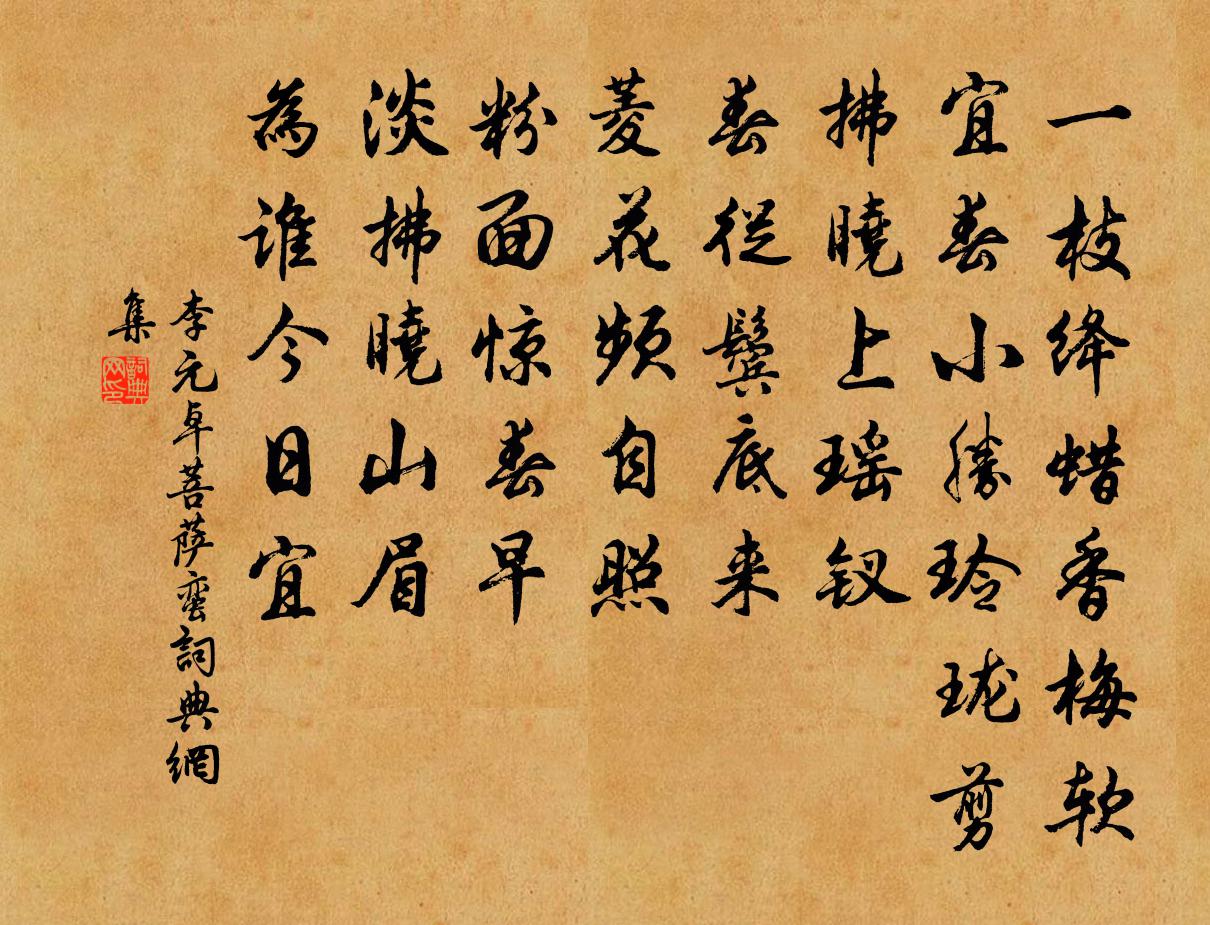 一枝绛蜡香梅软
宜春小胜玲珑剪
拂曉上瑶钗
春從鬓底来
菱花频自照
粉面惊春早
淡拂曉山眉
為谁今日宜
李元卓菩萨蛮詞典網
集
詞典
网印